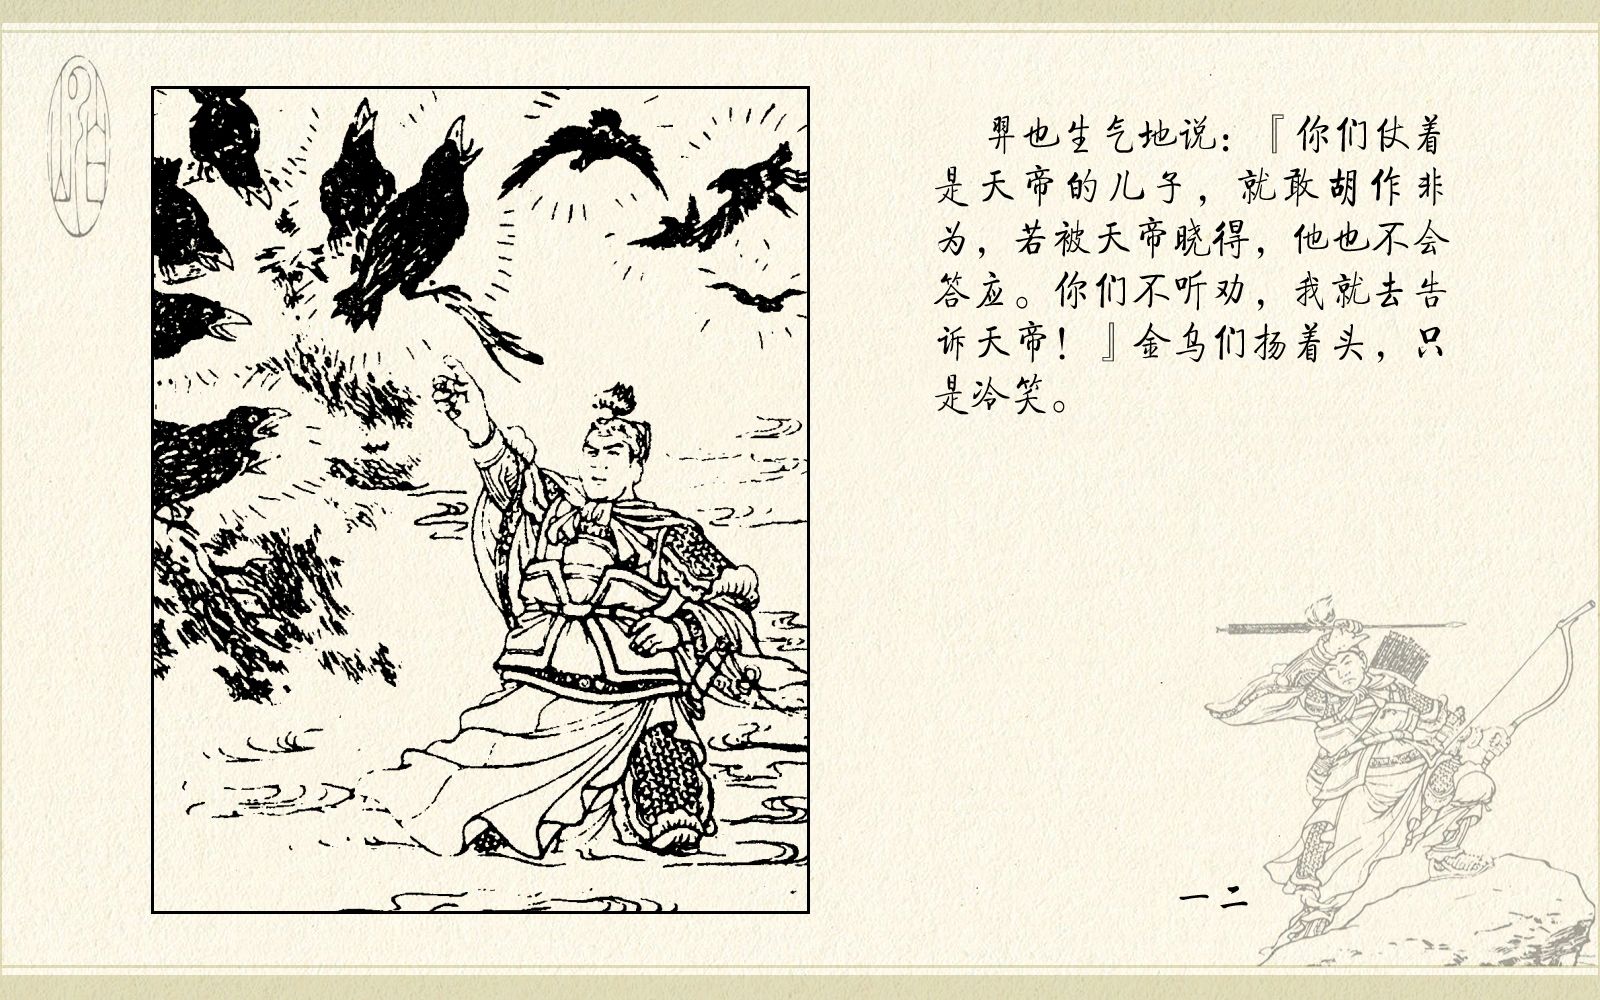 羿也生气地说：『你们仗着
是天帝的儿子，就敢胡作非
为，若被天帝晓得，他也不会
答应。你们不听劝，我就去告
诉天帝！』金乌们扬着头，只
是冷笑。
一二